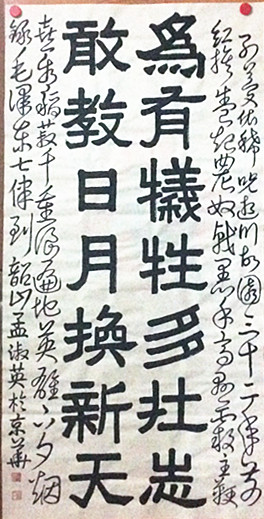 別夢依稀咒逝川故園三十二年前
紅旗卷起農奴戟黑手高懸霸主鞭
為有犧牲多壮志
敢教日月換新天
喜看稻菽千重浪遍地英雄下夕烟
錄毛澤東七律到韶山孟淑英於京華